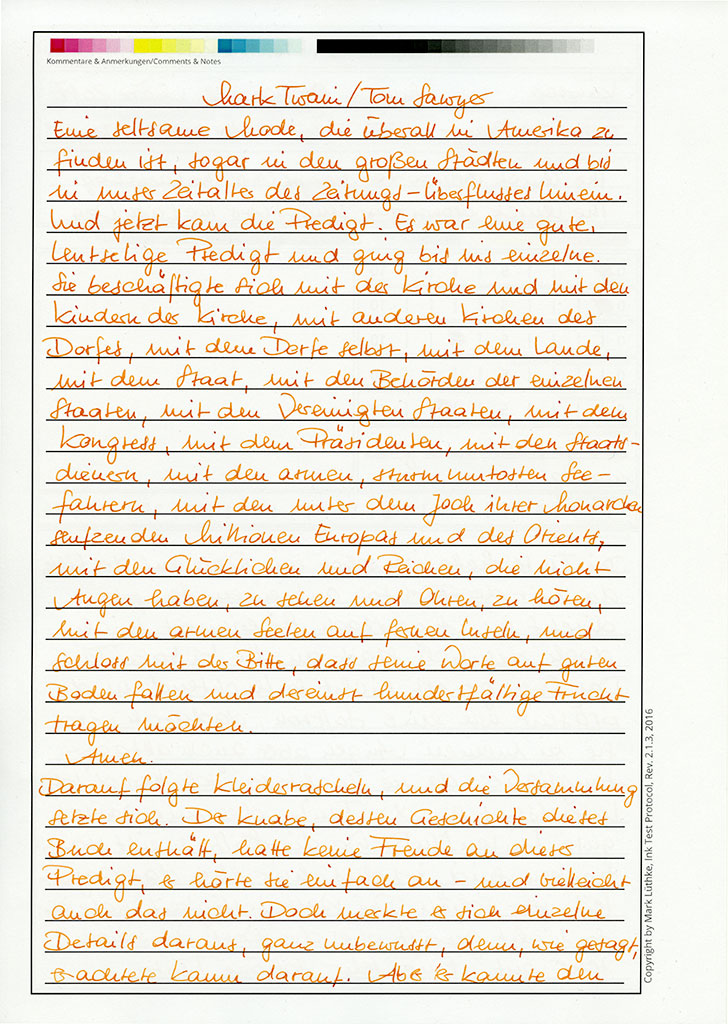 Kommentare & Anmerkungen/Comments & Notes
Mark Twain / Tom Sawyer
Eine seltsame Mode, die überall in Amerika zu
finden ist, sogar in den großen Städten und bis
in unser Zeitalter des Zeitungs-Überflusses hinein.
Und jetzt kam die Predigt. Es war eine gute,
leutselige Predigt und ging bis ins einzelne.
Sie beschäftigte sich mit der Kirche und mit den
Kindern der Kirche, mit anderen Kirchen des
Dorfes, mit dem Dorfe selbst, mit dem Lande,
mit dem Staat, mit den Behörden der einzelnen
Staaten, mit den Vereinigten Staaten, mit dem
Kongress, mit dem Präsidenten, mit den Staats-
dienern, mit den armen, sturmumtosten See-
fahrern, mit den unter dem Joch ihrer Monarchen
seufzenden Millionen Europas und des Orients,
mit den Glücklichen und Reichen, die nicht
Augen haben, zu sehen und Ohren, zu hören,
mit den armen Seelen auf fernen Inseln, und
schloss mit der Bitte, dass seine Worte auf guten
Boden fallen und dereinst hundertfältige Frucht
tragen möchten.
Amen.
Darauf folgte Kleiderrascheln, und die Versammlung
setzte sich. Der Knabe, dessen Geschichte dieses
Buch enthält, hatte keine Freude an dieser
Predigt, er hörte sie einfach an – und vielleicht
auch das nicht. Doch merkte er sich einzelne
Details daraus, ganz unbewusst, denn, wie gesagt,
er achtete kaum darauf. Aber er kannte den
Copyright by Mark Lüthke, Ink Test Protocol, Rev. 2.1.3, 2016